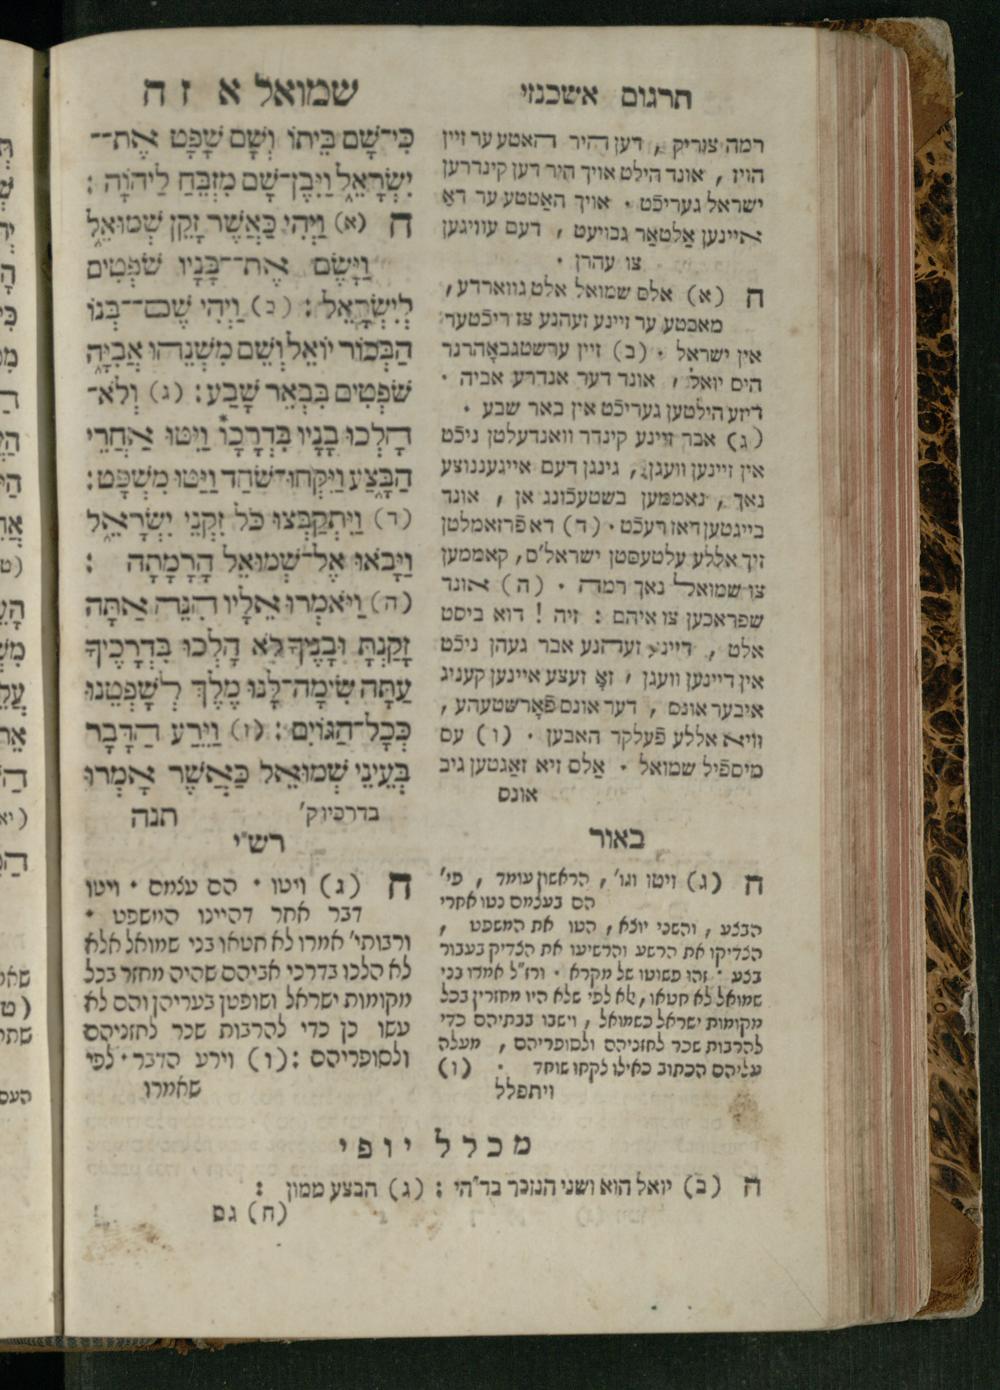 שמואל א ז ח
כִּי־שָׁם בֵּיתוֹ וְשָׁם שָׁפָט אֶת־־
יִשְׂרָאֵל וַיִּבֶן־שָׁם מִזְבֵּחַ לַיהוָֹה :
ח (א) וַיְהִי כַּאֲשֶׁר זָקֵן שְׁמוּאֵל
וַיָּשֶׂם אֶת־־בָּנָיו שֹׁפְטִים
לְיִשְׂרָאֵל : (ב) וַיְהִי שֶׁם־־בְּנוֹ
הַבְּכוֹר יוֹאֵל וְשֵׁם מִשְׁנֵהוּ אֲבִיָּה
שֹׁפְטִים בִּבְאֵר שָׁבַע : (ג) וְלֹא־
הָלְכוּ בָנָיו בִּדְרָכָו֯ וַיִּטּוּ אַחֲרֵי
הַבָּצַע וַיִּקְחוּ־שֹׁחַד וַיַּטּוּ מִשְׁפָּט :
(ד) וַיִּתְקַבְּצוּ כֹּל זִקְנֵי יִשְׂרָאֵל
וַיָּבֹאוּ אֶל־שְׁמוּאֵל הָרָמָתָה :
(ה) וַיֹּאמְרוּ אֵלָיו הִנֵּה אַתָּה
זָקַנְתָּ וּבָנֶיךָ לֹא הָלְכוּ בִּדְרָכֶיךָ
עַתָּה שִׂימָה־לָּנוּ מֶלֶךְ לְשָׁפְטֵנוּ
כְּכָל־הַגּוֹיִם : (ו) וַיֵּרַע הַדָּבָר
בְּעֵינֵי שְׁמוּאֵל כַּאֲשֶׁר אָמְרוּ
בדרכיו ק' תנה
תרגום אשכנזי
רמה צוריק , דען היר האטטע ער זיין
הויז , אונד הילט אויך היר דען קינדרען
ישראל געריכֿט . אויך האַטטע ער דאַ
איינען אַלטאַר גבויעט , דעם עוויגען
צו עהרן .
ח (א) אלס שמואל אלט גווארדע ,
מאכטע ער זיינע זעהנע צו ריכֿטער
אין ישראל . (ב) זיין ערשטגבאָהרנר
היס יואל , אונד דער אנדרע אביה .
דיזע הילטען געריכֿט אין באר שבע .
(ג) אבר זיינע קינדר וואנדעלטן ניכֿט
אין זיינען וועגן , גינגן דעם אייגעננוצע
נאך , נאממען בשטעכֿונג אן , אונד
בייגטען דאז רעכֿט . (ד) דא פֿרזאמלטן
זיך אללע עלטעסטן ישראל'ס , קאממען
צו שמואל נאך רמה . (ה) אונד
שפראכען צו איהם : זיה ! דוא ביסט
אלט , דיינע זעהנע אבר געהן ניכֿט
אין דיינען וועגן , זאָ זעצע איינען קעניג
איבער אונס , דער אונס פֿאָרשטעהע ,
וויא אללע פֿעלקר האבען . (ו) עס
מיספֿיל שמואל . אַלס זיא זאַגטען גיב
אונס
רש"י
ח (ג) ויטו . הם עצמם . ויטו
דבר אחר דהיינו המשפט .
ורבותי' אמרו לא חטאו בני שמואל אלא
לא הלכו בדרכי אביהם שהיה מחזר בכל
מקומות ישראל ושופטן בעריהן והם לא
עשו כן כדי להרבות שכר לחזניהם
ולסופריהם : (ו) וירע הדבר . לפי
שאמרו
באור
ח (ג) ויטו וגו' , הראשון עומד , פי'
הם בעצמם נטו אחרי
הבצע , והשני יוצא , הטו את המשפט ,
הצדיקו את הרשע והרשיעו את הצדיק בעבור
בצע . זהו פשוטו של מקרא . ורז"ל אמרו בני
שמואל לא חטאו , לא לפי שלא היו מחזרין בכל
מקומות ישראל כשמואל , וישבו בבתיהם כדי
להרבות שכר לחזניהם ולסופריהם , מעלה
עליהם הכתוב כאילו לקחו שוחד . (ו)
ויתפלל
מכלל יופי
ח (ב) יואל הוא ושני הנזכר בד"הי : (ג) הבצע ממון :
(ח) גם